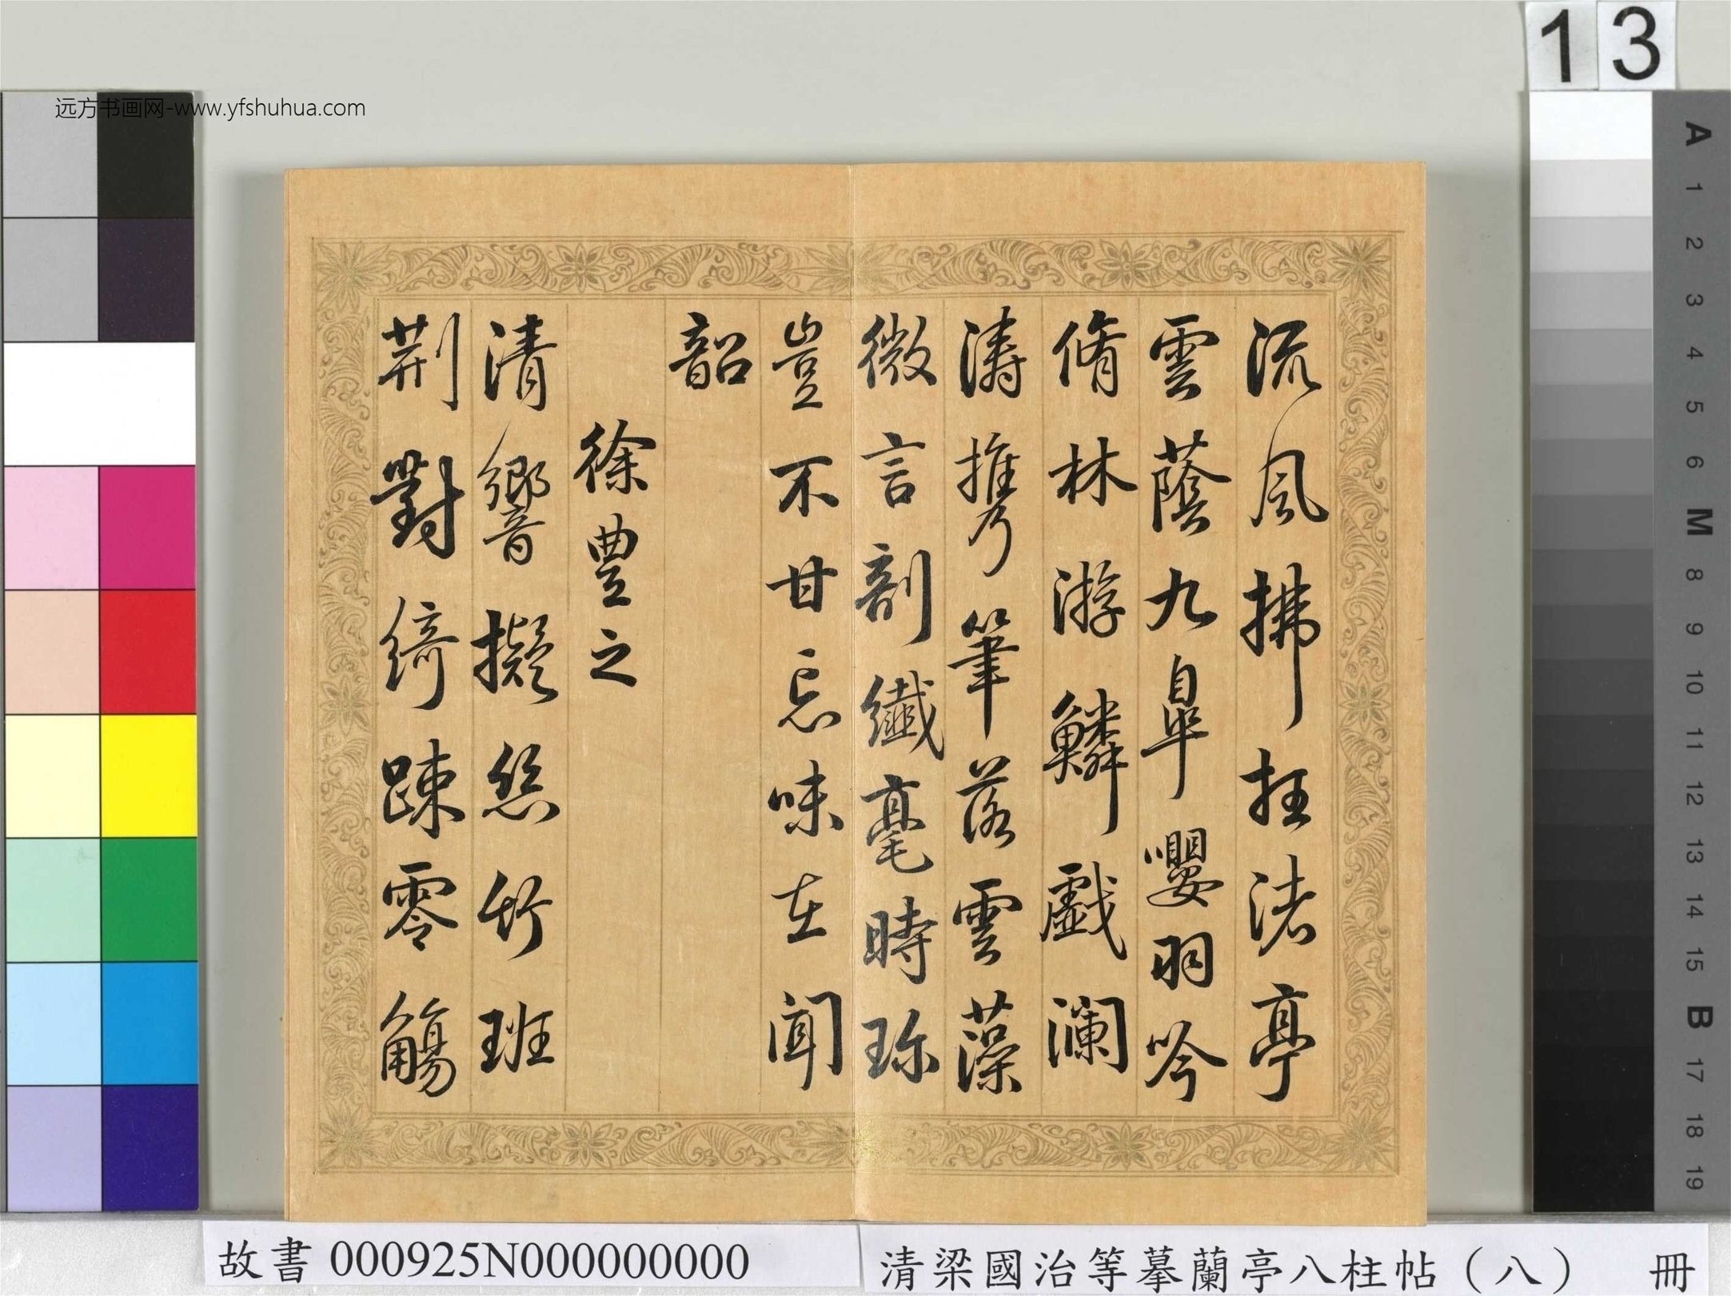 远方书画网-www.yfshuhua.com
13
流風拂抂渚亭
雲蔭九皐嚶羽吟
脩林游鱗戯瀾
濤擕筆落雲藻
微言剖纖毫時珎
豈不甘忘味在聞
韶
徐豊之
清響擬絲竹班
荆對綺疎零觴
A
1
2
3
4
5
6
M
8
9
10
11
12
13
14
15
B
17
18
19
故書 000925N000000000
清梁國治等摹蘭亭八柱帖（八） 冊